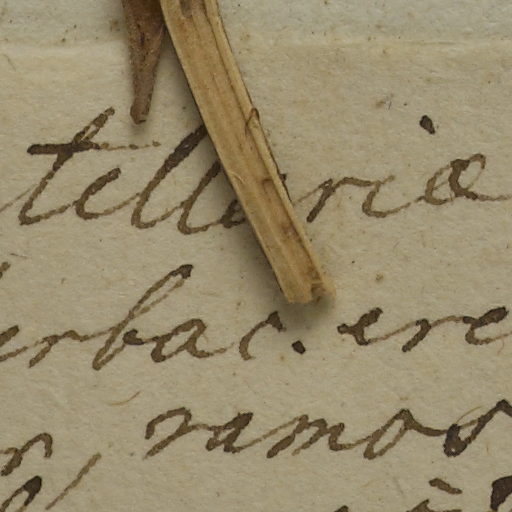 tellariæ
erbac. ere
r, ramos